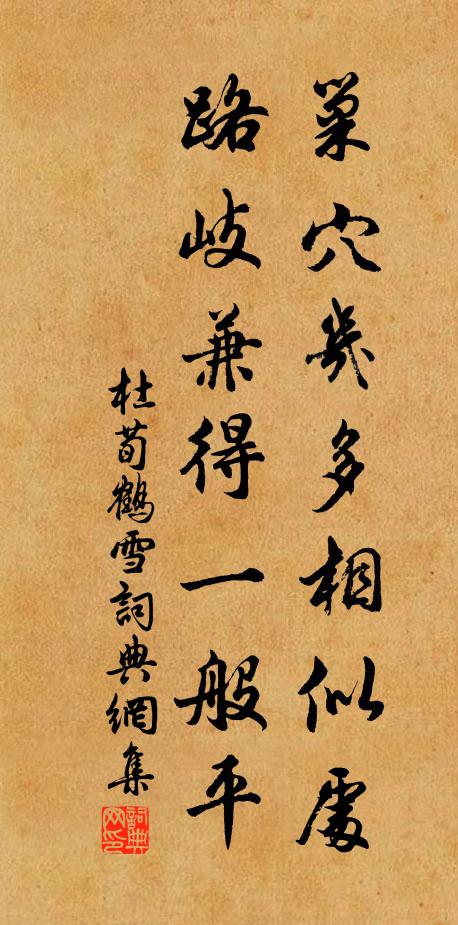 巢穴幾多相似處
路岐兼得一般平
杜荀鶴雪詞典網集
詞典网印